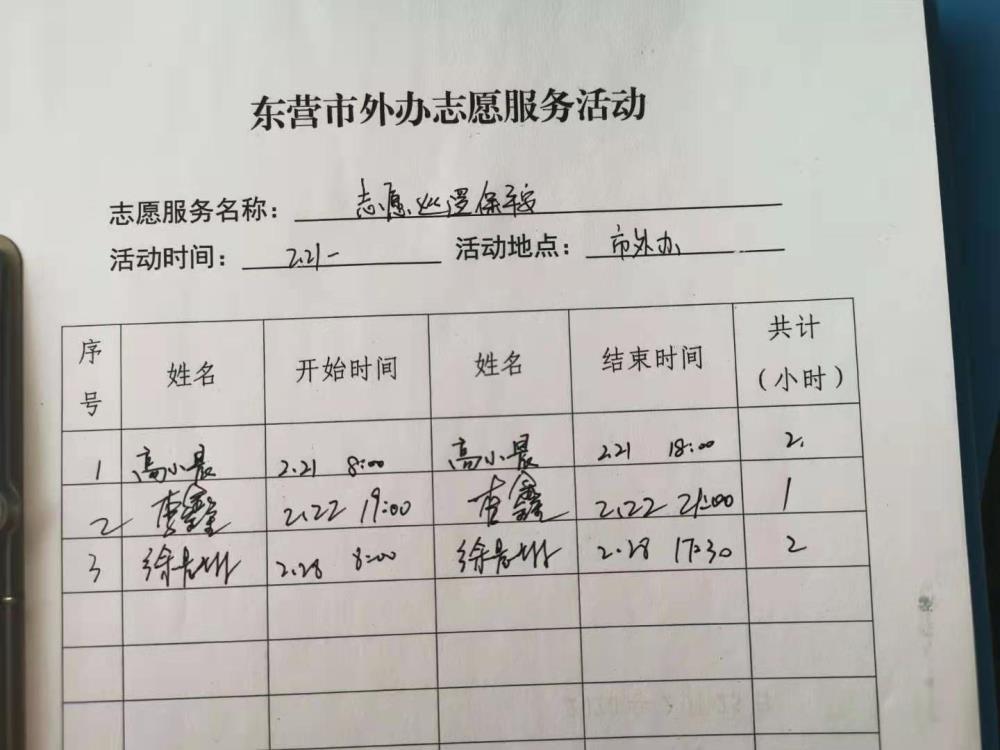 东营市外办志愿服务活动
志愿服务名称：志愿巡逻保平安
活动时间：2.21- 活动地点：市外办
序号 姓名 开始时间 姓名 结束时间 共计（小时）
1 高小晨 2.21 8:00 高小晨 2.21 18:00 2.
2 李鑫 2.22 19:00 李鑫 2.22 21:00 1
3 2.28 8:00 2.28 17:30 2